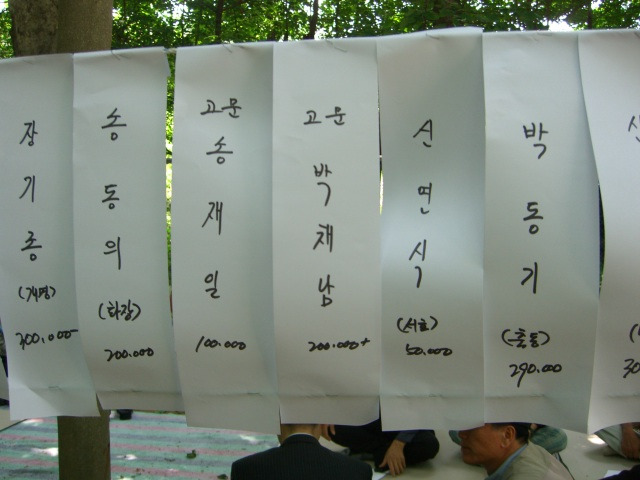 장기종
(계명)
200.000-
송동의
(화장)
200.000
고문
송재일
100.000
고문
박채남
200.000+
신연식
(서호)
50.000
박동기
(출동)
290.000
신
30